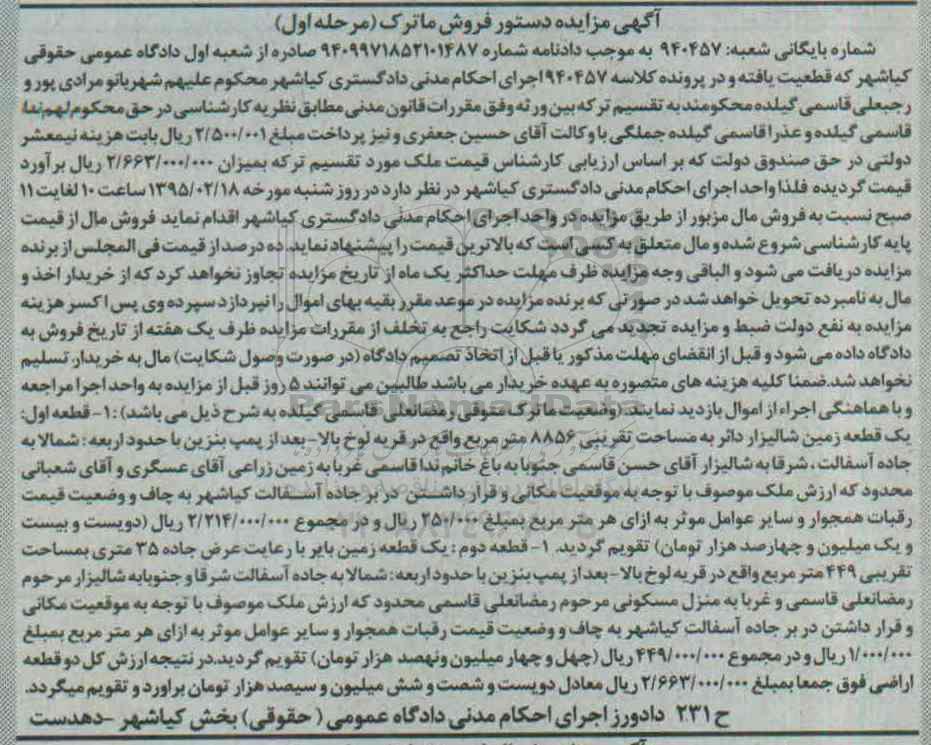 آگهی مزایده دستور فروش ماترک (مرحله اول)
شماره بایگانی شعبه: ۹۴۰۴۵۷ به موجب دادنامه شماره ۹۴۰۹۹۷۱۸۵۲۱۰۱۴۸۷ صادره از شعبه اول دادگاه عمومی حقوقی
کیاشهر که قطعیت یافته و در پرونده کلاسه ۹۴۰۴۵۷اجرای احکام مدنی دادگستری کیاشهر محکوم علیهم شهربانو مرادی پور و
رجبعلی قاسمی گیلده محکومند به تقسیم ترکه بین ورثه وفق مقررات قانون مدنی مطابق نظریه کارشناسی در حق محکوم لهم ندا
قاسمی گیلده و عذرا قاسمی گیلده جملگی با وکالت آقای حسین جعفری و نیز پرداخت مبلغ ۲/۵۰۰/۰۰۱ ریال بابت هزینه نیمعشر
دولتی در حق صندوق دولت که بر اساس ارزیابی کارشناس قیمت ملک مورد تقسیم ترکه بمیزان ۲/۶۶۳/۰۰۰/۰۰۰ ریال برآورد
قیمت گردیده فلذا واحد اجرای احکام مدنی دادگستری کیاشهر در نظر دارد در روز شنبه مورخه ۱۳۹۵/۰۲/۱۸ ساعت ۱۰ لغایت ۱۱
صبح نسبت به فروش مال مزبور از طریق مزایده در واحد اجرای احکام مدنی دادگستری کیاشهر اقدام نماید فروش مال از قیمت
پایه کارشناسی شروع شده و مال متعلق به کسی است که بالاترین قیمت را پیشنهاد نماید. ده درصد از قیمت فی المجلس از برنده
مزایده دریافت می شود و الباقی وجه مزایده ظرف مهلت حداکثر یک ماه از تاریخ مزایده تجاوز نخواهد کرد که از خریدار اخذ و
مال به نامبرده تحویل خواهد شد در صورتی که برنده مزایده در موعد مقرر بقیه بهای اموال را نپردازد سپرده وی پس ا کسر هزینه
مزایده به نفع دولت ضبط و مزایده تجدید می گردد شکایت راجع به تخلف از مقررات مزایده ظرف یک هفته از تاریخ فروش به
دادگاه داده می شود و قبل از انقضای مهلت مذکور یا قبل از اتخاذ تصمیم دادگاه (در صورت وصول شکایت) مال به خریدار تسلیم
نخواهد شد.ضمنا کلیه هزینه های متصوره به عهده خریدار می باشد طالبین می توانند ۵ روز قبل از مزایده به واحد اجرا مراجعه
و با هماهنگی اجراء از اموال بازدید نمایند. (وضعیت ماترک متوفی رمضانعلی قاسمی گیلده به شرح ذیل می باشد) :۱- قطعه اول:
یک قطعه زمین شالیزار دائر به مساحت تقریبی ۸۸۵۶ متر مربع واقع در قریه لوخ بالا-بعد از پمپ بنزین با حدود اربعه : شمالا به
جاده آسفالت ، شرقا به شالیزار آقای حسن قاسمی جنوبا به باغ خانم ندا قاسمی غربا به زمین زراعی آقای عسگری و آقای شعبانی
محدود که ارزش ملک موصوف با توجه به موقعیت مکانی و قرار داشتن در بر جاده آسفالت کیاشهر به چاف و وضعیت قیمت
رقبات همجوار و سایر عوامل موثر به ازای هر متر مربع بمبلغ ۲۵۰/۰۰۰ ریال و در مجموع ۲/۲۱۴/۰۰۰/۰۰۰ ریال (دویست و بیست
و یک میلیون و چهارصد هزار تومان) تقویم گردید. ۱- قطعه دوم : یک قطعه زمین بایر با رعایت عرض جاده ۳۵ متری بمساحت
تقریبی ۴۴۹ متر مربع واقع در قریه لوخ بالا-بعد از پمپ بنزین با حدود اربعه : شمالا به جاده آسفالت شرقا و جنوبا به شالیزار مرحوم
رمضانعلی قاسمی و غربا به منزل مسکونی مرحوم رمضانعلی قاسمی محدود که ارزش ملک موصوف با توجه به موقعیت مکانی
و قرار داشتن در بر جاده آسفالت کیاشهر به چاف و وضعیت قیمت رقبات همجوار و سایر عوامل موثر به ازای هر متر مربع بمبلغ
۱/۰۰۰/۰۰۰ ریال و در مجموع ۴۴۹/۰۰۰/۰۰۰ ریال (چهل و چهار میلیون ونهصد هزار تومان) تقویم گردید.در نتیجه ارزش کل دو قطعه
اراضی فوق جمعا بمبلغ ۲/۶۶۳/۰۰۰/۰۰۰ ریال معادل دویست و شصت و شش میلیون و سیصد هزار تومان براورد و تقویم میگردد.
ح ۲۳۱ دادورز اجرای احکام مدنی دادگاه عمومی (حقوقی) بخش کیاشهر -دهدست